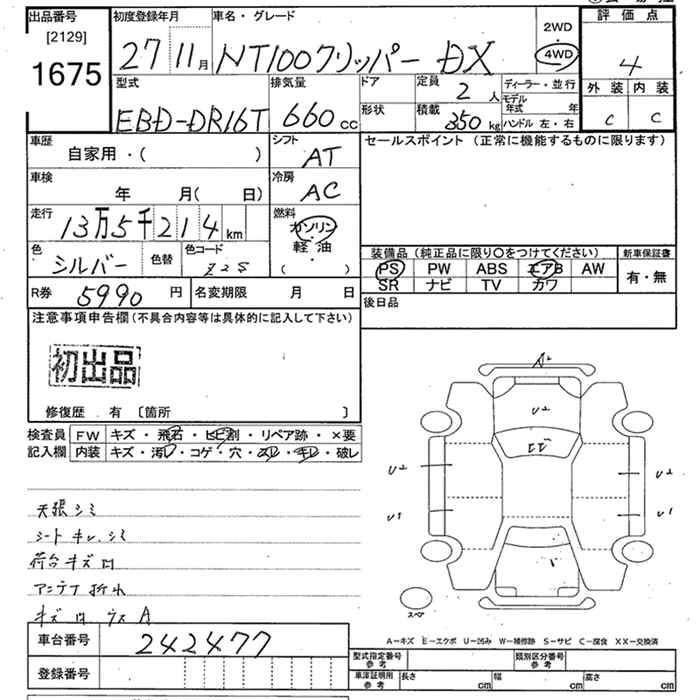 出品番号 初度登録年月 車名・グレード
[2129]
1675
27 11月 NT100クリッパー DX
2WD
4WD
評価点
4
外装 内装
C C
型式 排気量 ドア 定員 2人 ディーラー・並行
EBD-DR16T 660cc
形状 積載 350kg
モデル年式 年
ハンドル 左・右
車歴 自家用・( )
シフト AT
セールスポイント (正常に機能するものに限ります)
車検 年 月( 日)
冷房 AC
走行 13万5千214km
燃料 ガソリン・軽油 ( )
色 シルバー 色替 色コード Z2S
装備品 (純正品に限り○をつけてください) 新車保証書
PS PW ABS エアB AW 有・無
SR ナビ TV カワ
R券 5990円 名変期限 月 日
後日品
注意事項申告欄 (不具合内容等は具体的に記入して下さい)
初出品
修復歴 有 〔箇所 〕
検査員 FW キズ・飛石・ヒビ割・リペア跡・×要
記入欄 内装 キズ・汚レ・コゲ・穴・スレ・キレ・破レ
天張シミ
シートキレ、シミ
荷台キズ凹
アンテナ折れ
A2
U2
U2 U2
U1 U1
スペア
A=キズ E=エクボ U=凹み W=補修跡 S=サビ C=腐食 XX=交換済
車台番号 242477
型式指定番号 参考 類別区分番号 参考
登録番号
車庫証明用 参考 長さ cm 幅 cm 高さ cm